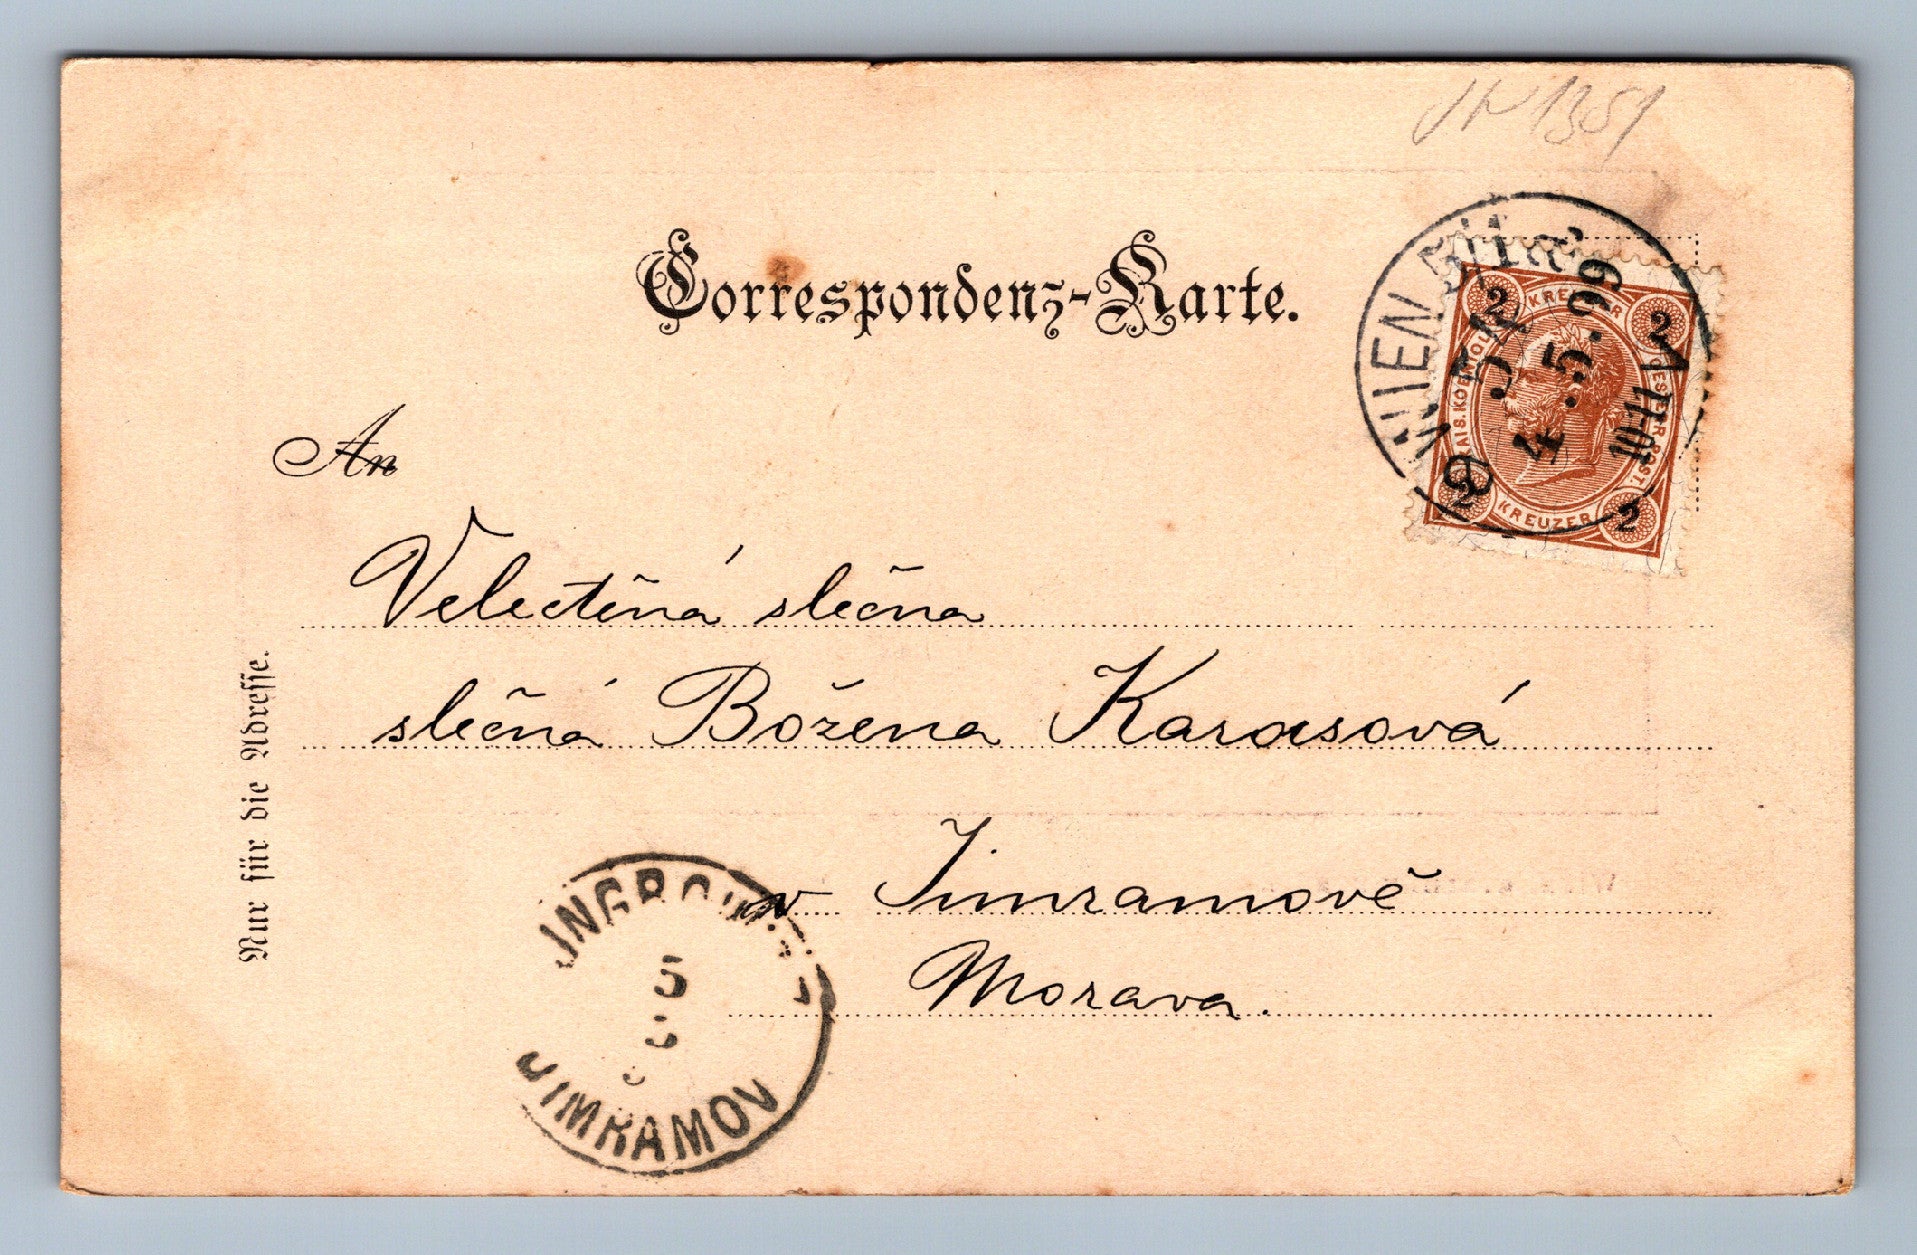 1351
Correspondenz-Karte.
An
Velectěná slečna
slečná Božena Karasová
v Jimramově
Morava.
Nur für die Adresse.
WIEN
4.5.99
10-11V
9
2 KREUZER 2
KAIS. KOENIGL.
OESTERR. POST.
2 KREUZER 2
INGROWITZ
5
JIMRAMOV